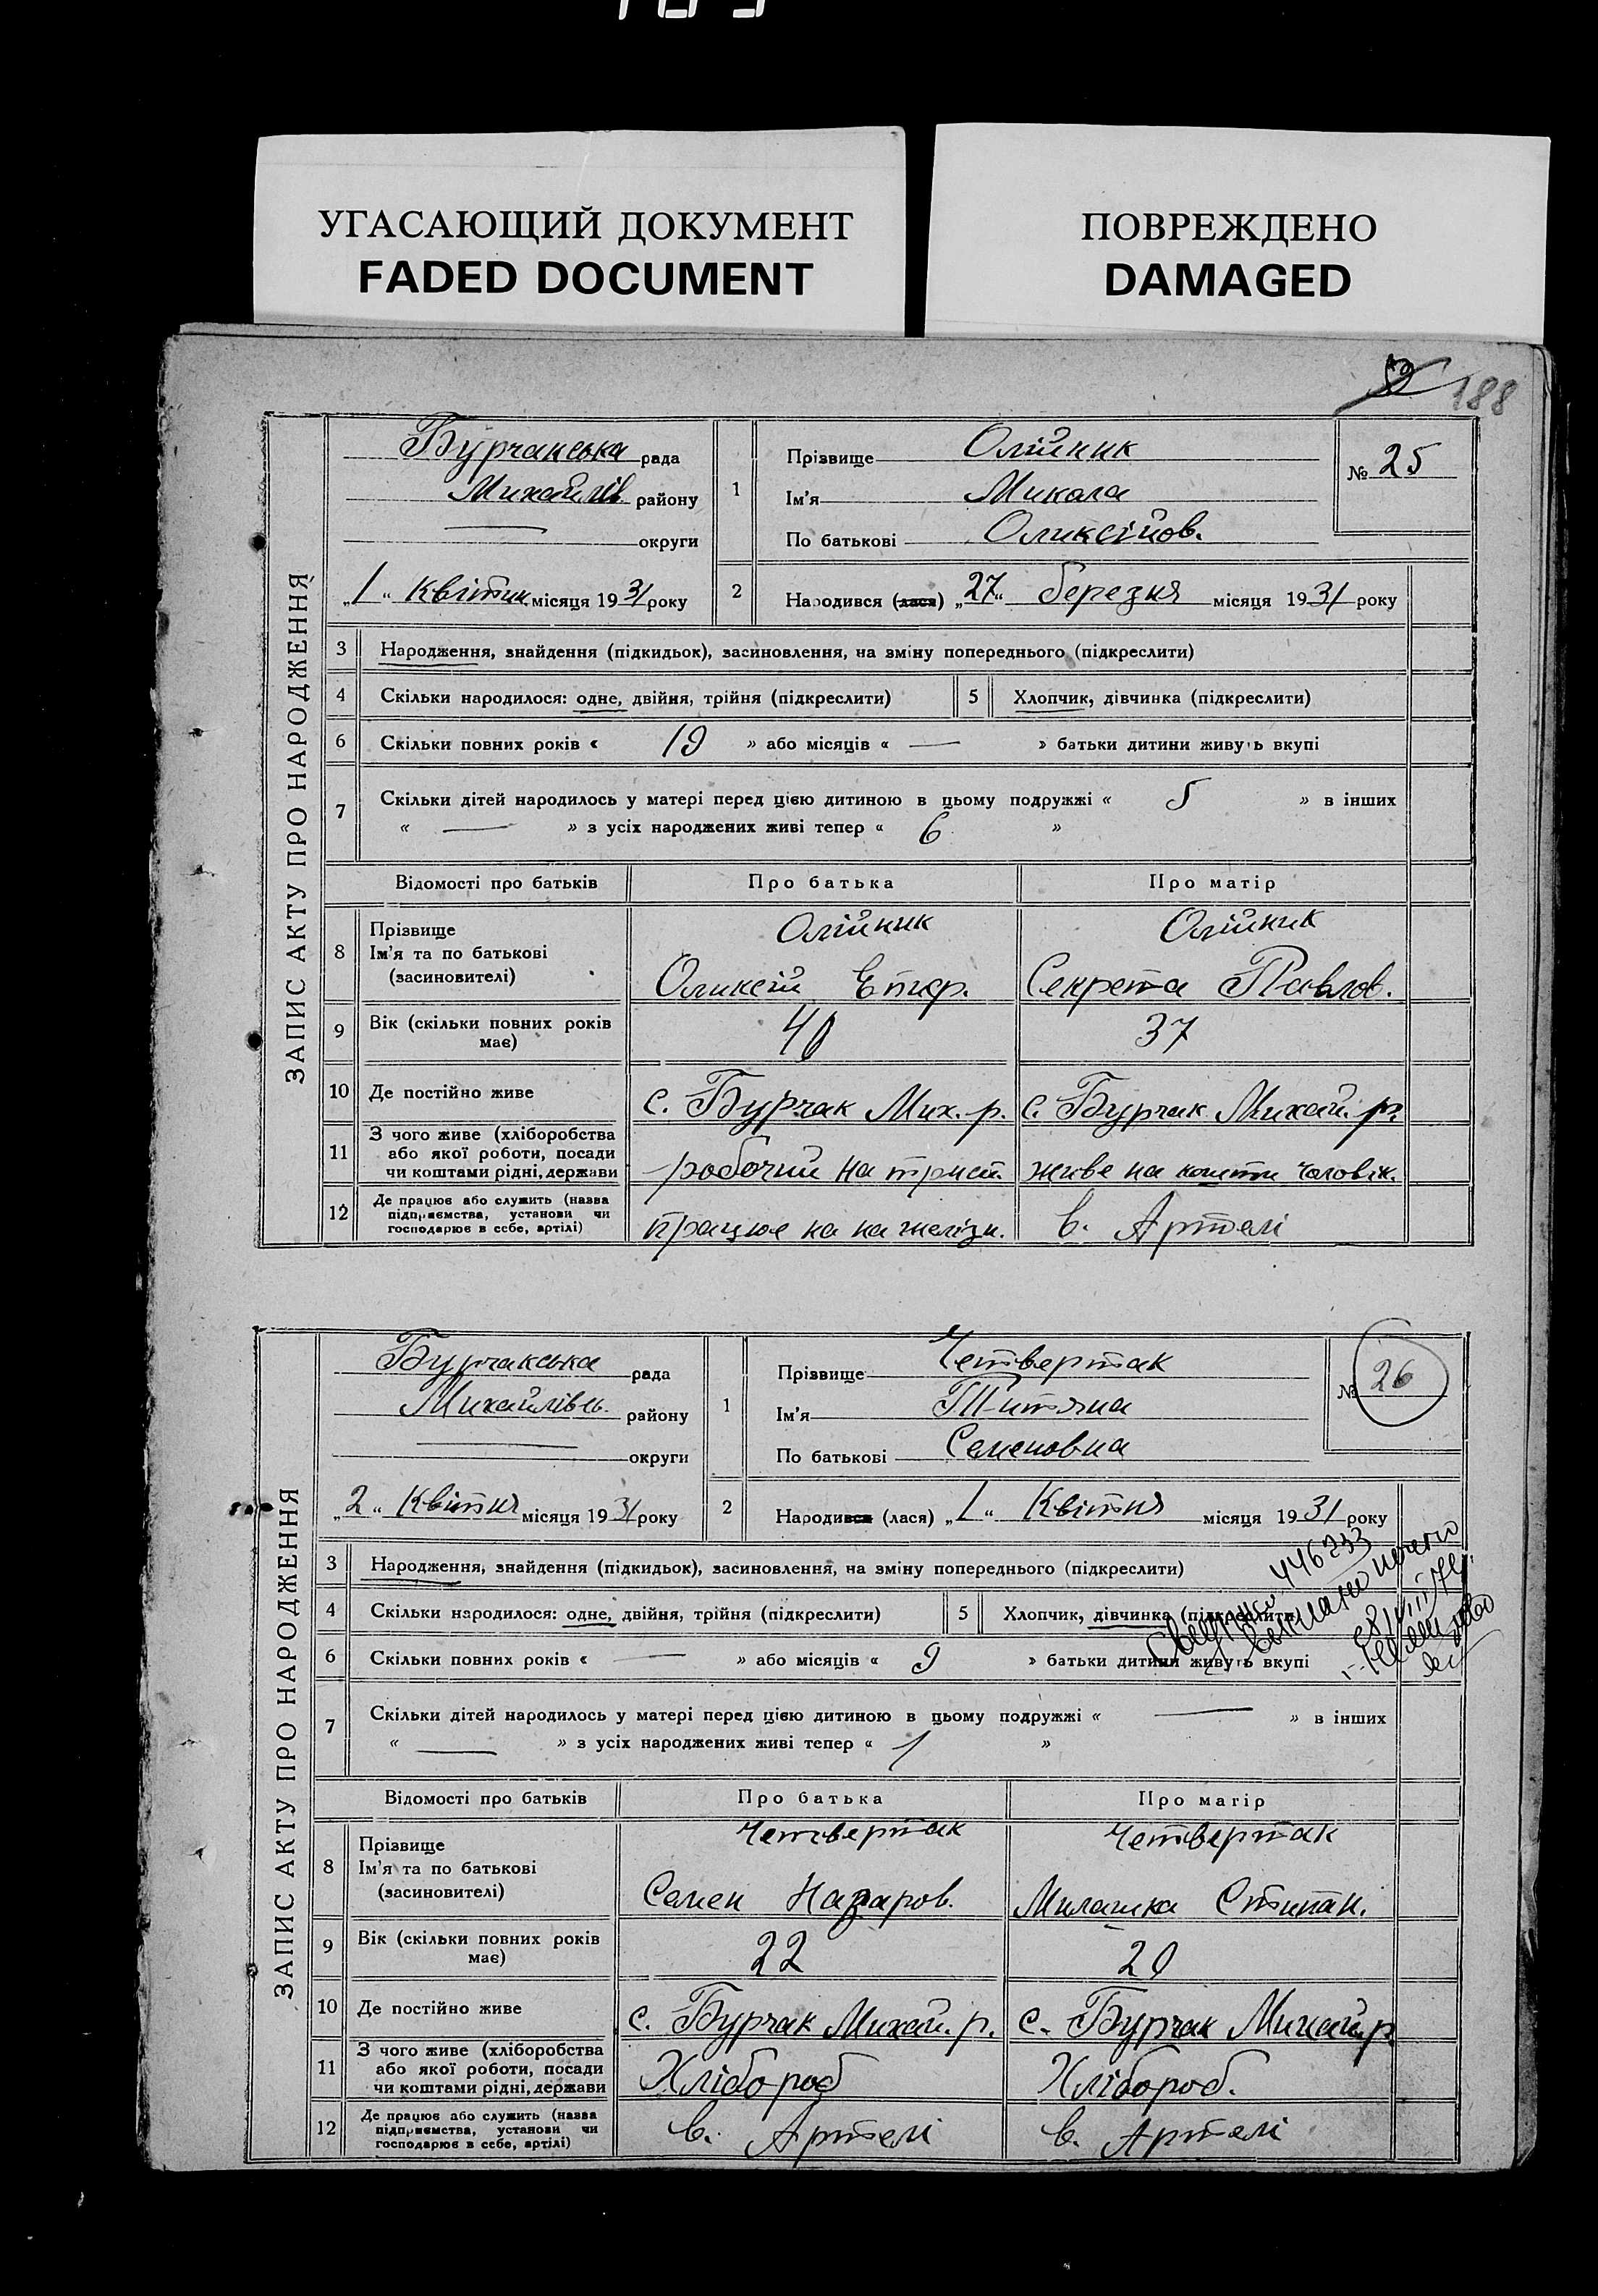 УГАСАЮЩИЙ ДОКУМЕНТ
FADED DOCUMENT
ПОВРЕЖДЕНО
DAMAGED
188
ЗАПИС АКТУ ПРО НАРОДЖЕННЯ
Бурчанська рада
Михайлів. району
округи
„1“ Квітня місяця 1931 року
1 Прізвище Олійник
Ім'я Микола
По батькові Оликсійов.
№ 25
2 Народився (лася) „27“ березня місяця 1931 року
3 Народження, знайдення (підкидьок), засиновлення, на зміну попереднього (підкреслити)
4 Скільки народилося: одне, двійня, трійня (підкреслити) 5 Хлопчик, дівчинка (підкреслити)
6 Скільки повних років « 19 » або місяців « — » батьки дитини живуть вкупі
7 Скільки дітей народилось у матері перед цією дитиною в цьому подружжі « 5 » в інших
« — » з усіх народжених живі тепер « 6 »
Відомості про батьків Про батька Про матір
8 Прізвище Олійник Олійник
Ім'я та по батькові
(засиновителі) Оликсій Секрета Павлов.
9 Вік (скільки повних років має) 40 37
10 Де постійно живе с. Бурчак Мих. р. с. Бурчак Михай. р.
11 З чого живе (хліборобства
або якої роботи, посади
чи коштами рідні, держави робочий на живе на кошти чоловік.
12 Де працює або служить (назва
підприємства, установи чи
господарює в себе, артілі) працює на на желізн. в. Артелі
ЗАПИС АКТУ ПРО НАРОДЖЕННЯ
Бурчакська рада
Михайлівсь. району
округи
„2“ Квітня місяця 1931 року
1 Прізвище Четвертак
Ім'я Титяна
По батькові Семеновна
№ 26
2 Народився (лася) „1“ Квітня місяця 1931 року
3 Народження, знайдення (підкидьок), засиновлення, на зміну попереднього (підкреслити)
4 Скільки народилося: одне, двійня, трійня (підкреслити) 5 Хлопчик, дівчинка (підкреслити)
446233
6 Скільки повних років « — » або місяців « 9 » батьки дитини живуть вкупі
7 Скільки дітей народилось у матері перед цією дитиною в цьому подружжі « — » в інших
« — » з усіх народжених живі тепер « 1 »
Відомості про батьків Про батька Про матір
8 Прізвище Четвертак Четвертак
Ім'я та по батькові
(засиновителі) Семен Назаров. Милашка Стипан.
9 Вік (скільки повних років має) 22 20
10 Де постійно живе с. Бурчак Михай. р. с. Бурчак Михай. р
11 З чого живе (хліборобства
або якої роботи, посади
чи коштами рідні, держави Хлібороб Хлібороб.
12 Де працює або служить (назва
підприємства, установи чи
господарює в себе, артілі) в. Артелі в. Артелі